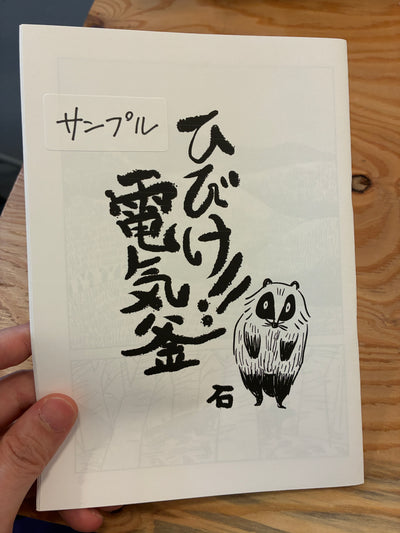 サンプル
ひびけ!!
電気釜
石